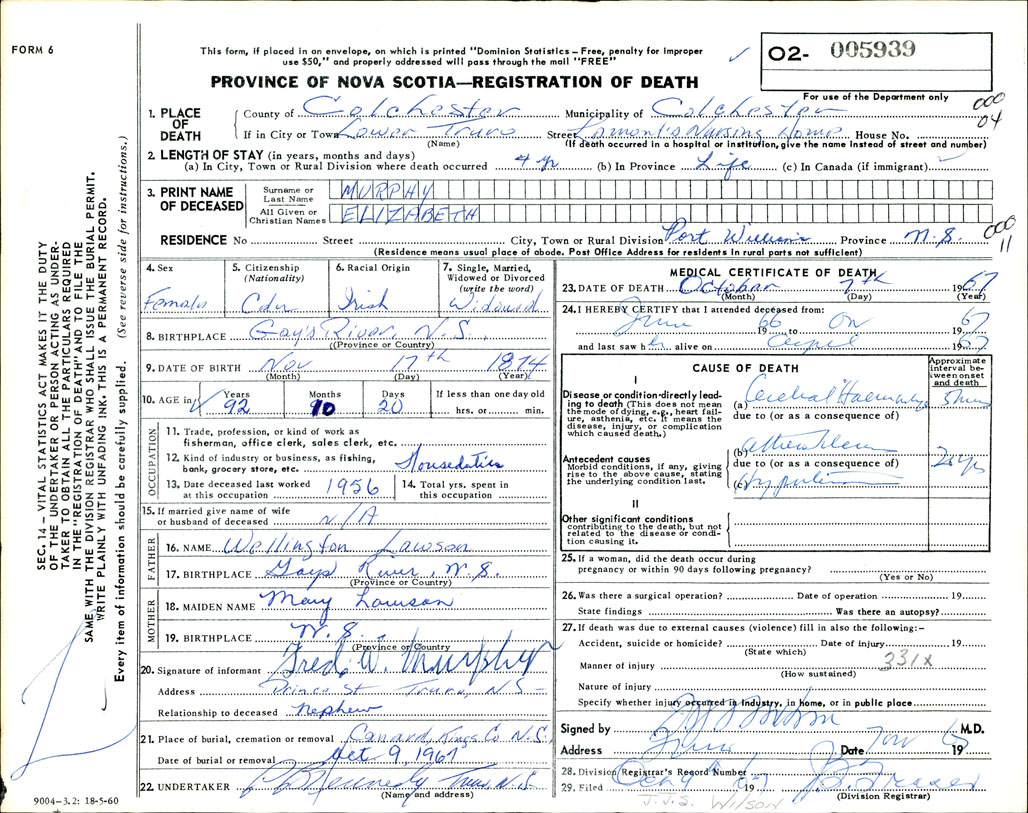 FORM 6
This form, if placed in an envelope, on which is printed "Dominion Statistics – Free, penalty for improper
use $50," and properly addressed will pass through the mail "FREE"
PROVINCE OF NOVA SCOTIA—REGISTRATION OF DEATH
O2- 005939
For use of the Department only
000
04
1. PLACE OF DEATH
County of Colchester Municipality of Colchester
If in City or Town Lower Truro Street Lamont's Nursing Home House No.
(Name) (If death occurred in a hospital or institution, give the name instead of street and number)
2. LENGTH OF STAY (in years, months and days)
(a) In City, Town or Rural Division where death occurred 4 yr (b) In Province Life (c) In Canada (if immigrant)
3. PRINT NAME OF DECEASED
Surname or Last Name MURPHY
All Given or Christian Names ELIZABETH
000
11
RESIDENCE No Street City, Town or Rural Division Port Williams Province N.S.
(Residence means usual place of abode. Post Office Address for residents in rural parts not sufficient)
4. Sex Female
5. Citizenship (Nationality) Cdn
6. Racial Origin Irish
7. Single, Married, Widowed or Divorced (write the word) Widowed
8. BIRTHPLACE Gay's River, N.S.
(Province or Country)
9. DATE OF BIRTH Nov 17th 1874
(Month) (Day) (Year)
10. AGE in Years 92 Months 10 Days 20 If less than one day old hrs. or min.
OCCUPATION
11. Trade, profession, or kind of work as
fisherman, office clerk, sales clerk, etc.
12. Kind of industry or business, as fishing,
bank, grocery store, etc. Housedaties
13. Date deceased last worked
at this occupation 1956
14. Total yrs. spent in
this occupation
15. If married give name of wife
or husband of deceased N/A
FATHER
16. NAME Wellington Lawson
17. BIRTHPLACE Gays River, N.S.
(Province or Country)
MOTHER
18. MAIDEN NAME Mary Lawson
19. BIRTHPLACE N.S.
(Province or Country)
20. Signature of informant Fred W. Murphy
Address Prince St Truro, N.S –
Relationship to deceased Nephew
21. Place of burial, cremation or removal Canard, Kings Co N.S.
Date of burial or removal Oct 9, 1967
22. UNDERTAKER Kennedy Truro N.S.
(Name and address)
MEDICAL CERTIFICATE OF DEATH
23. DATE OF DEATH October 7th 1967
(Month) (Day) (Year)
24. I HEREBY CERTIFY that I attended deceased from:
June 1966 to On 1967
and last saw her alive on 1967
CAUSE OF DEATH
Approximate interval between onset and death
I
Disease or condition directly leading to death (This does not mean
the mode of dying, e.g., heart failure, asthenia, etc. It means the
disease, injury, or complication
which caused death.)
(a) Cerebral Haemorrhage
due to (or as a consequence of)
Antecedent causes
Morbid conditions, if any, giving
rise to the above cause, stating
the underlying condition last.
(b)
due to (or as a consequence of)
(c) Hypertension
II
Other significant conditions
contributing to the death, but not
related to the disease or condition causing it.
25. If a woman, did the death occur during
pregnancy or within 90 days following pregnancy?
(Yes or No)
26. Was there a surgical operation? Date of operation 19
State findings Was there an autopsy?
27. If death was due to external causes (violence) fill in also the following:–
Accident, suicide or homicide? Date of injury 19
(State which)
331X
Manner of injury
(How sustained)
Nature of injury
Specify whether injury occurred in industry, in home, or in public place
Signed by M.D.
Address Truro Date 19
28. Division Registrar's Record Number
29. Filed 19
(Division Registrar)
J.J.S. WILSON
SEC. 14 – VITAL STATISTICS ACT MAKES IT THE DUTY
OF THE UNDERTAKER OR PERSON ACTING AS UNDERTAKER TO OBTAIN ALL THE PARTICULARS REQUIRED
IN THE "REGISTRATION OF DEATH" AND TO FILE THE
SAME WITH THE DIVISION REGISTRAR WHO SHALL ISSUE THE BURIAL PERMIT.
WRITE PLAINLY WITH UNFADING INK. THIS IS A PERMANENT RECORD.
Every item of information should be carefully supplied. (See reverse side for instructions.)
9004–3.2: 18-5-60